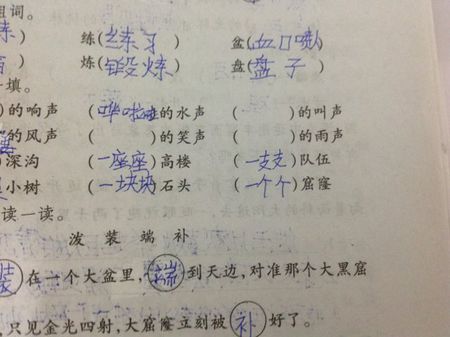 组词。
练(练习) 盆(血口喷人)
炼(锻炼) 盘(盘子)
填。
()的响声 (哗啦啦的水声 ()的叫声
的风声 ()的笑声 ()的雨声
)深沟 (一座座)高楼 (一支支)队伍
小树 (一块块)石头 (一个个)窟窿
读一读。
泼 装 端 补
装 在一个大盆里, 端 到天边,对准那个大黑窟
,只见金光四射,大窟窿立刻被 补 好了。